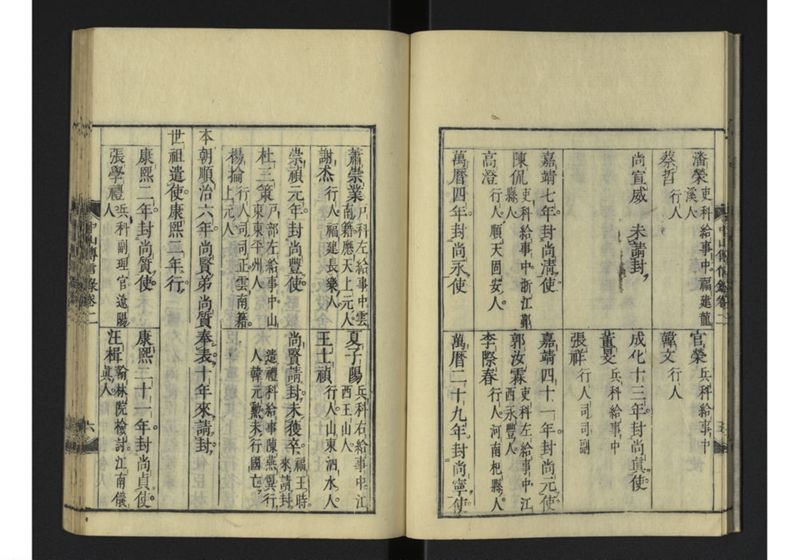 潘榮 吏科給事中福建龍溪人 官榮 兵科給事中
蔡哲 行人 韓文 行人
尚宣威 未請封 成化十三年封尚真使
董旻 兵科給事中
張祥 行人司司副
嘉靖七年封尚清使 嘉靖四十一年封尚元使
陳侃 吏科給事中浙江鄞縣人 郭汝霖 吏科左給事中江西永豐人
高澄 行人順天固安人 李際春 行人河南杞縣人
萬曆四年封尚永使 萬曆二十九年封尚寧使
蕭崇業 戶科左給事中雲南籍應天上元人 夏子陽 兵科右給事中江西玉山人
謝杰 行人福建長樂人 王士禎 行人山東泗水人
崇禎元年封尚豐使 尚賢請封未獲卒 福王時來請封
杜三策 戶部左給事中山東東平州人 遣禮科給事陳燕翼行人韓元勳未行國亡
楊掄 行人司司正雲南籍上元人
本朝順治六年尚賢弟尚質奉表十年來請封
世祖遣使康熙二年行
康熙二年封尚質使 康熙二十一年封尚貞使
張學禮 兵科副理官遼陽人 汪楫 翰林院檢討江南儀真人
中山傳信錄卷二 六